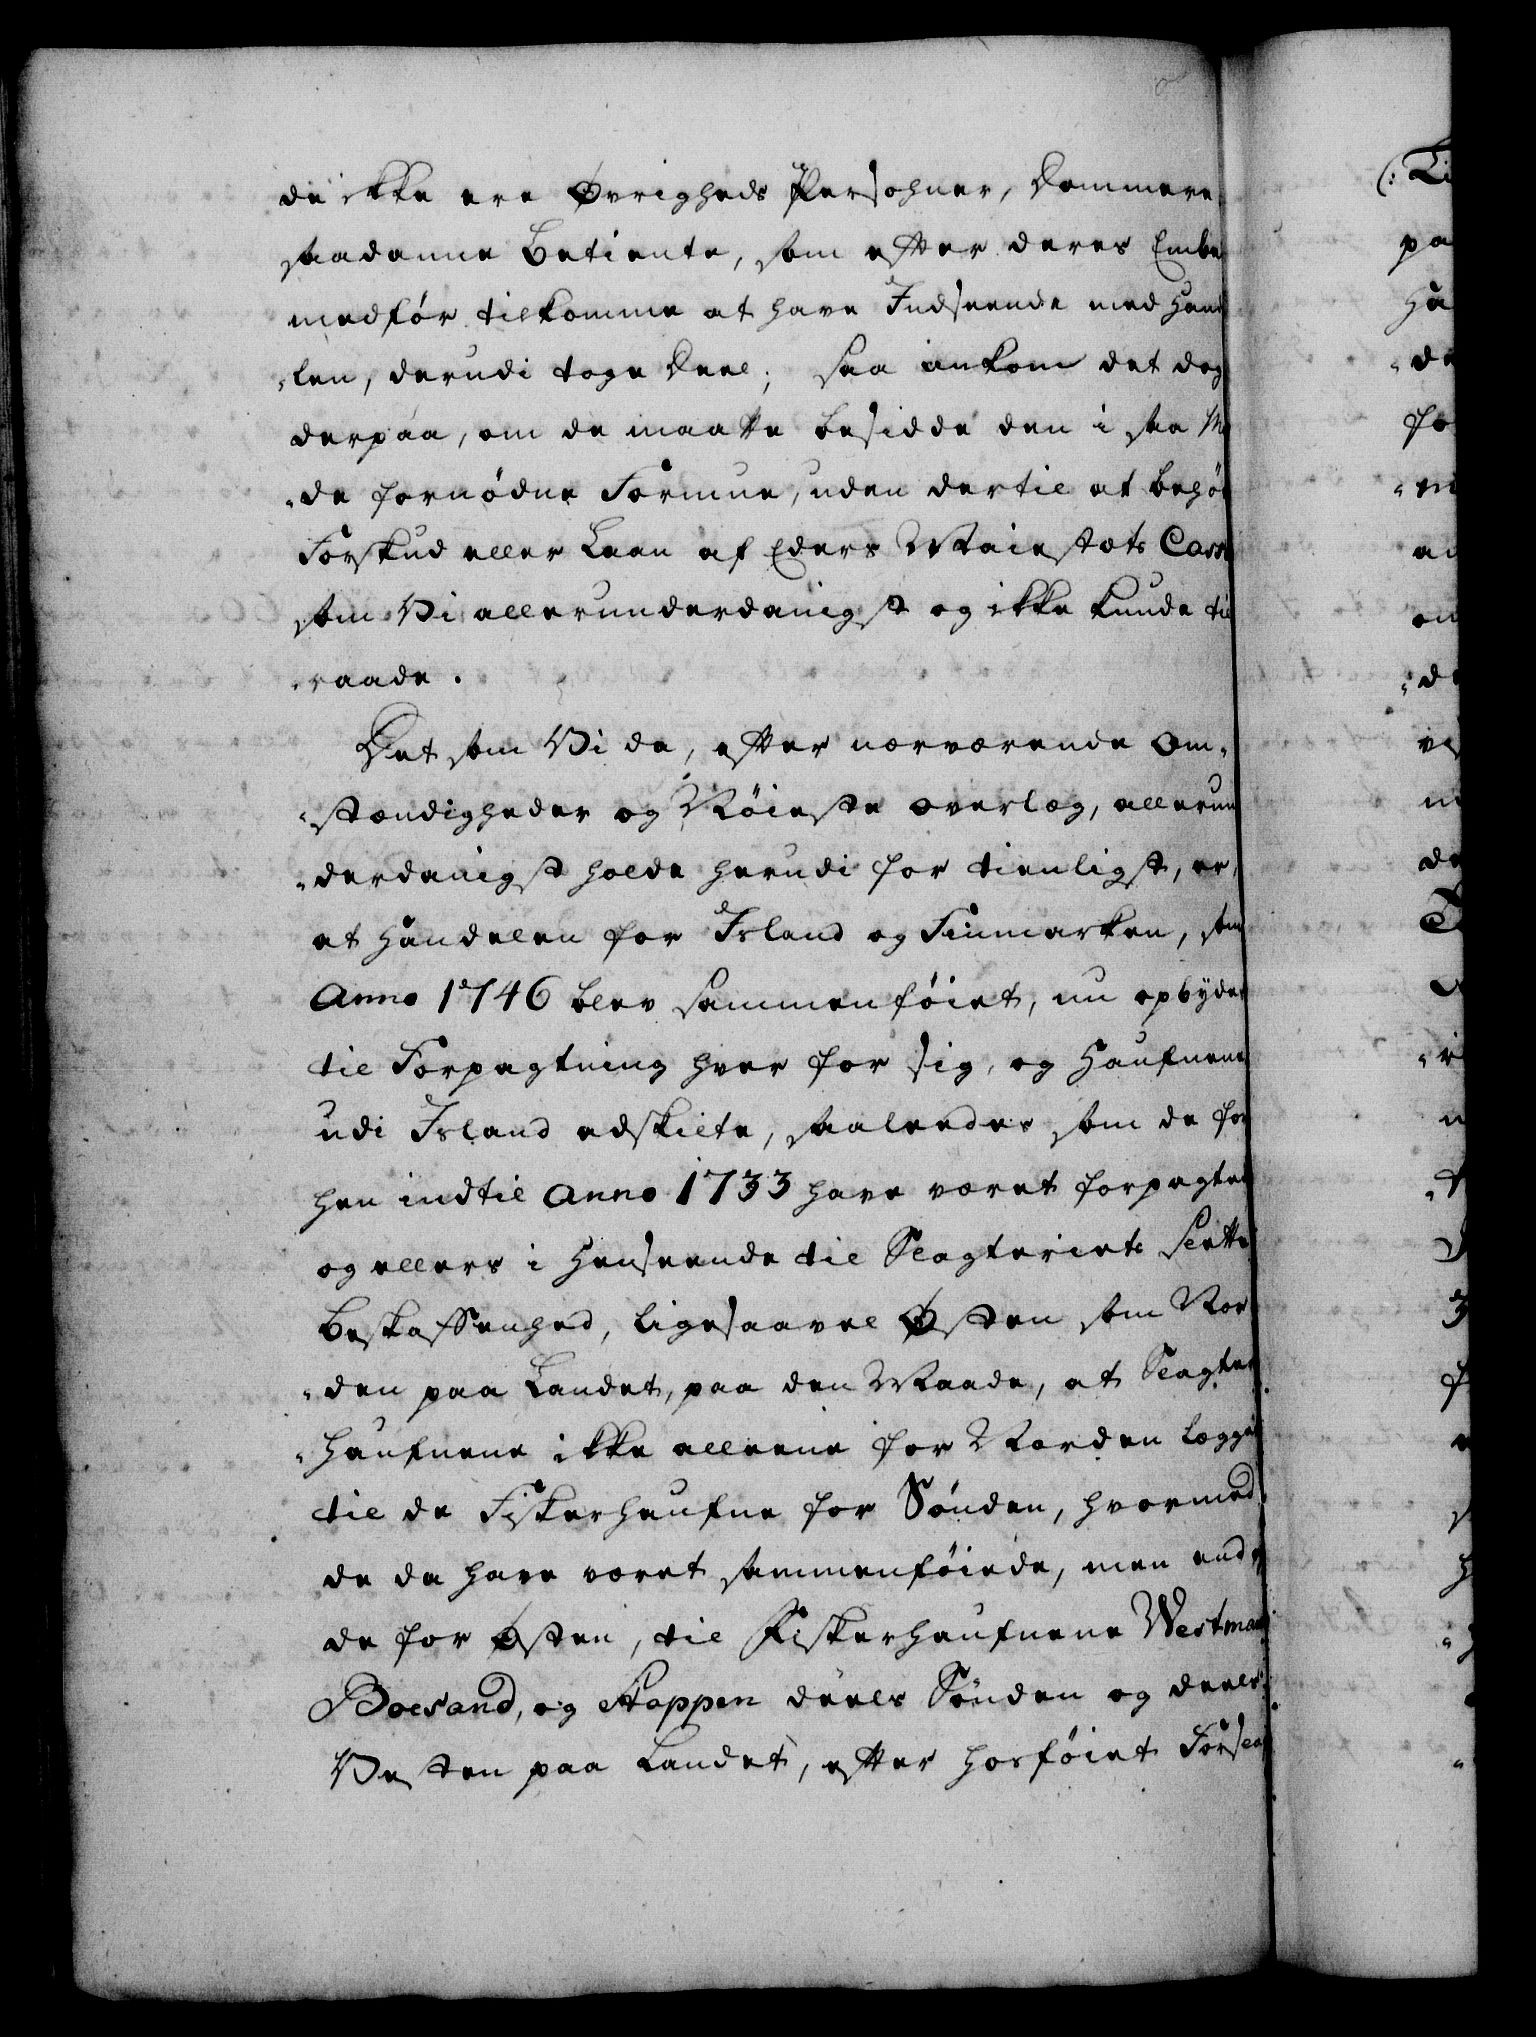 de ikke ere Øvrigheds Persohner, Dommere
saadanne Betiente, som efter deres Embe
medför tilkomme at have Indseende med Hand
„len, derudi toge Deel; saa ankom det dog
derpaa, om de maatte besidde den i saa M
„de fornödne Formue, uden dertil at behöv
Forskud eller Laan af Eders Maiestæts Cass
som Vi allerunderdanigst og ikke kunde til
„raade.
Det som Vi da, efter nærværende Om„
„stændigheder og Nöieste overlæg, allerun
„derdanigst holde herudi for tienligst, er,
at Handelen for Island og Finmarken, som
Anno 1746 blev sammenföiet, nu opbydes
til Forpagtning hver for sig, og Haufnene
udi Island adskilte, saaleedes som de for
hen indtil Anno 1733 have været forpagtet
og ellers i Henseende til Slagteriets slette
Beskaffenhed, ligesaavel Østen som Nor
„den paa Landet, paa den Maade, at Slagter
„haufnene ikke alleene for Norden lægges
til de Fiskerhaufne for Sönden, hvormed
de da have været sammenföiede, men endog
de for Østen, til Fiskerhaufnene Westman
Boesand, og Stappen deels Sönden og deels
Vesten paa Landet, efter hosföiet Forslag
(: Li
pa
Ha
„de
fo